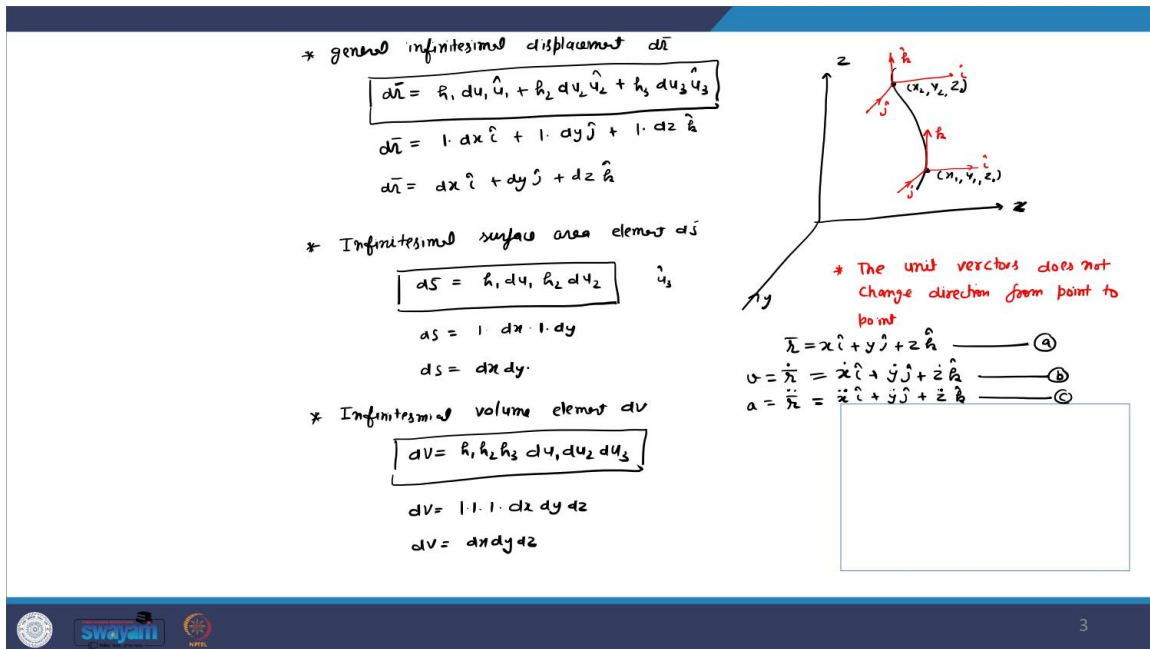 * general infinitesimal displacement dr̄
dr̄ = h₁ du₁ û₁ + h₂ du₂ û₂ + h₃ du₃ û₃
dr̄ = 1. dx î + 1. dy ĵ + 1. dz k̂
dr̄ = dx î + dy ĵ + dz k̂
* Infinitesimal surface area element ds̄
ds̄ = h₁ du₁ h₂ du₂ û₃
ds = 1 dx . 1. dy
ds = dx dy.
* Infinitesmial volume element dv
dv = h₁ h₂ h₃ du₁ du₂ du₃
dv = 1.1.1. dx dy dz
dv = dx dy dz
z
k̂
î
(x₂, y₂, z₂)
ĵ
k̂
î
(x₁, y₁, z₁)
ĵ
x
y
* The unit verctors does not
change direction from point to
point
r̄ = x î + y ĵ + z k̂ ⓐ
v = ṙ̄ = ẋ î + ẏ ĵ + ż k̂ ⓑ
a = r̈̄ = ẍ î + ÿ ĵ + z̈ k̂ ⓒ
swayam
NPTEL
3